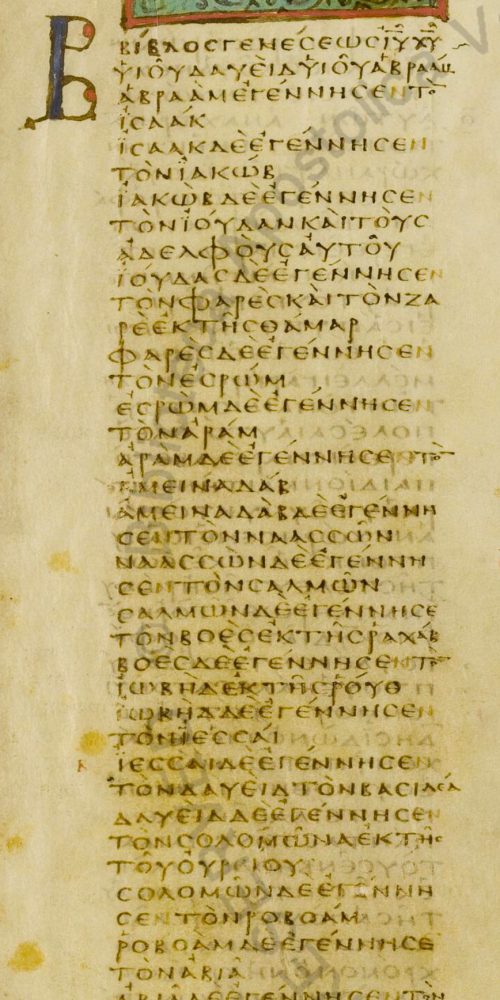 ΒΙΒΛΟϹΓΕΝΕϹΕΩϹΙΥΧΥ
ΥΙΟΥΔΑΥΕΙΔΥΙΟΥΑΒΡΑΑΜ
ΑΒΡΑΑΜΕΓΕΝΝΗϹΕΝΤΟ
ΙϹΑΑΚ
ΙϹΑΑΚΔΕΕΓΕΝΝΗϹΕΝ
ΤΟΝΙΑΚΩΒ
ΙΑΚΩΒΔΕΕΓΕΝΝΗϹΕΝ
ΤΟΝΙΟΥΔΑΝΚΑΙΤΟΥϹ
ΑΔΕΛΦΟΥϹΑΥΤΟΥ
ΙΟΥΔΑϹΔΕΕΓΕΝΝΗϹΕΝ
ΤΟΝΦΑΡΕϹΚΑΙΤΟΝΖΑ
ΡΕΕΚΤΗϹΘΑΜΑΡ
ΦΑΡΕϹΔΕΕΓΕΝΝΗϹΕΝ
ΤΟΝΕϹΡΩΜ
ΕϹΡΩΜΔΕΕΓΕΝΝΗϹΕΝ
ΤΟΝΑΡΑΜ
ΑΡΑΜΔΕΕΓΕΝΝΗϹΕΝΤΟ
ΑΜΕΙΝΑΔΑΒ
ΑΜΕΙΝΑΔΑΒΔΕΕΓΕΝΝΗ
ϹΕΝΤΟΝΝΑΑϹϹΩΝ
ΝΑΑϹϹΩΝΔΕΕΓΕΝΝΗ
ϹΕΝΤΟΝϹΑΛΜΩΝ
ϹΑΛΜΩΝΔΕΕΓΕΝΝΗϹΕ
ΤΟΝΒΟΕϹΕΚΤΗϹΡΑΧΑΒ
ΒΟΕϹΔΕΕΓΕΝΝΗϹΕΝΤΟ
ΙΩΒΗΔΕΚΤΗϹΡΟΥΘ
ΙΩΒΗΔΔΕΕΓΕΝΝΗϹΕΝ
ΤΟΝΙΕϹϹΑΙ
ΙΕϹϹΑΙΔΕΕΓΕΝΝΗϹΕΝ
ΤΟΝΔΑΥΕΙΔΤΟΝΒΑϹΙΛΕΑ
ΔΑΥΕΙΔΔΕΕΓΕΝΝΗϹΕΝ
ΤΟΝϹΟΛΟΜΩΝΑΕΚΤΗϹ
ΤΟΥΟΥΡΕΙΟΥ
ϹΟΛΟΜΩΝΔΕΕΓΕΝΝΗ
ϹΕΝΤΟΝΡΟΒΟΑΜ
ΡΟΒΟΑΜΔΕΕΓΕΝΝΗϹΕ
ΤΟΝΑΒΙΑ
ΑΒΙΑΔΕΕΓΕΝΝΗϹΕΝΤΟΝ